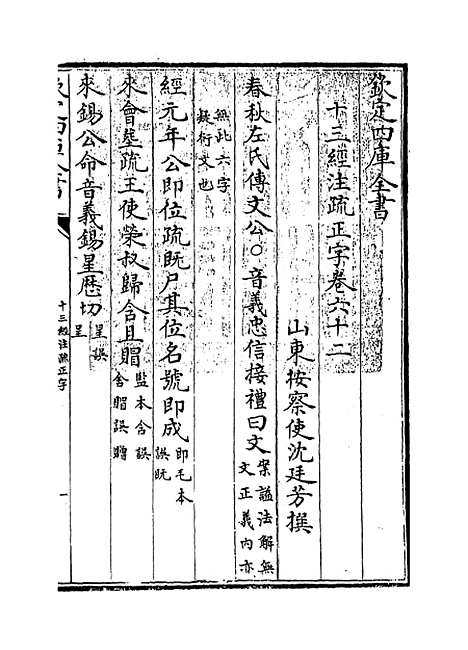 欽定四庫全書
十三經注疏正字卷六十二
山東按察使沈廷芳撰
春秋左氏傳文公〇音義忠信接禮曰文案謚法解無文正義内亦
無此六字疑衍文也
經元年公即位疏既尸其位名號即成即毛本誤既
來會塟疏王使榮叔歸含且賵監本含誤舍賵誤贈
來錫公命音義錫星歴切星誤呈
十三經注疏正字
一